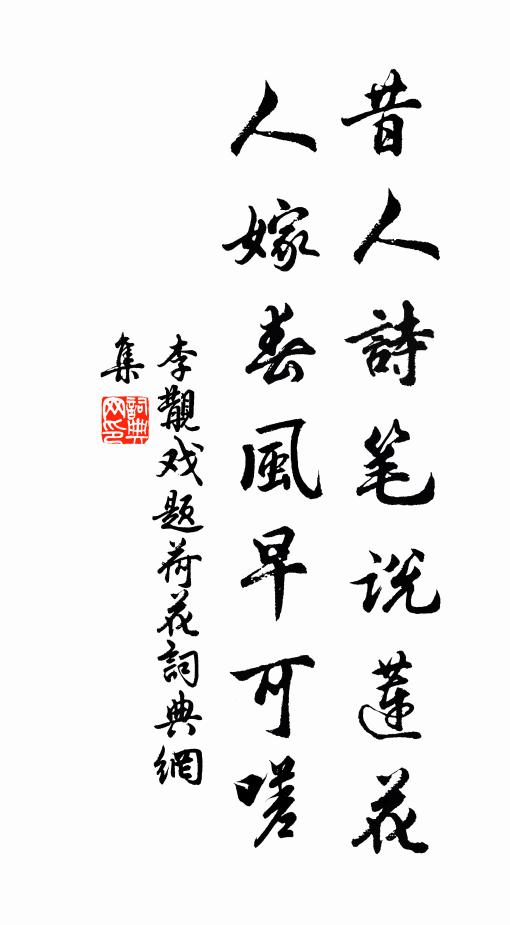 昔人詩笔说蓮花
人嫁春風早可嗟
李觏戏题荷花詞典網
集
詞典網印